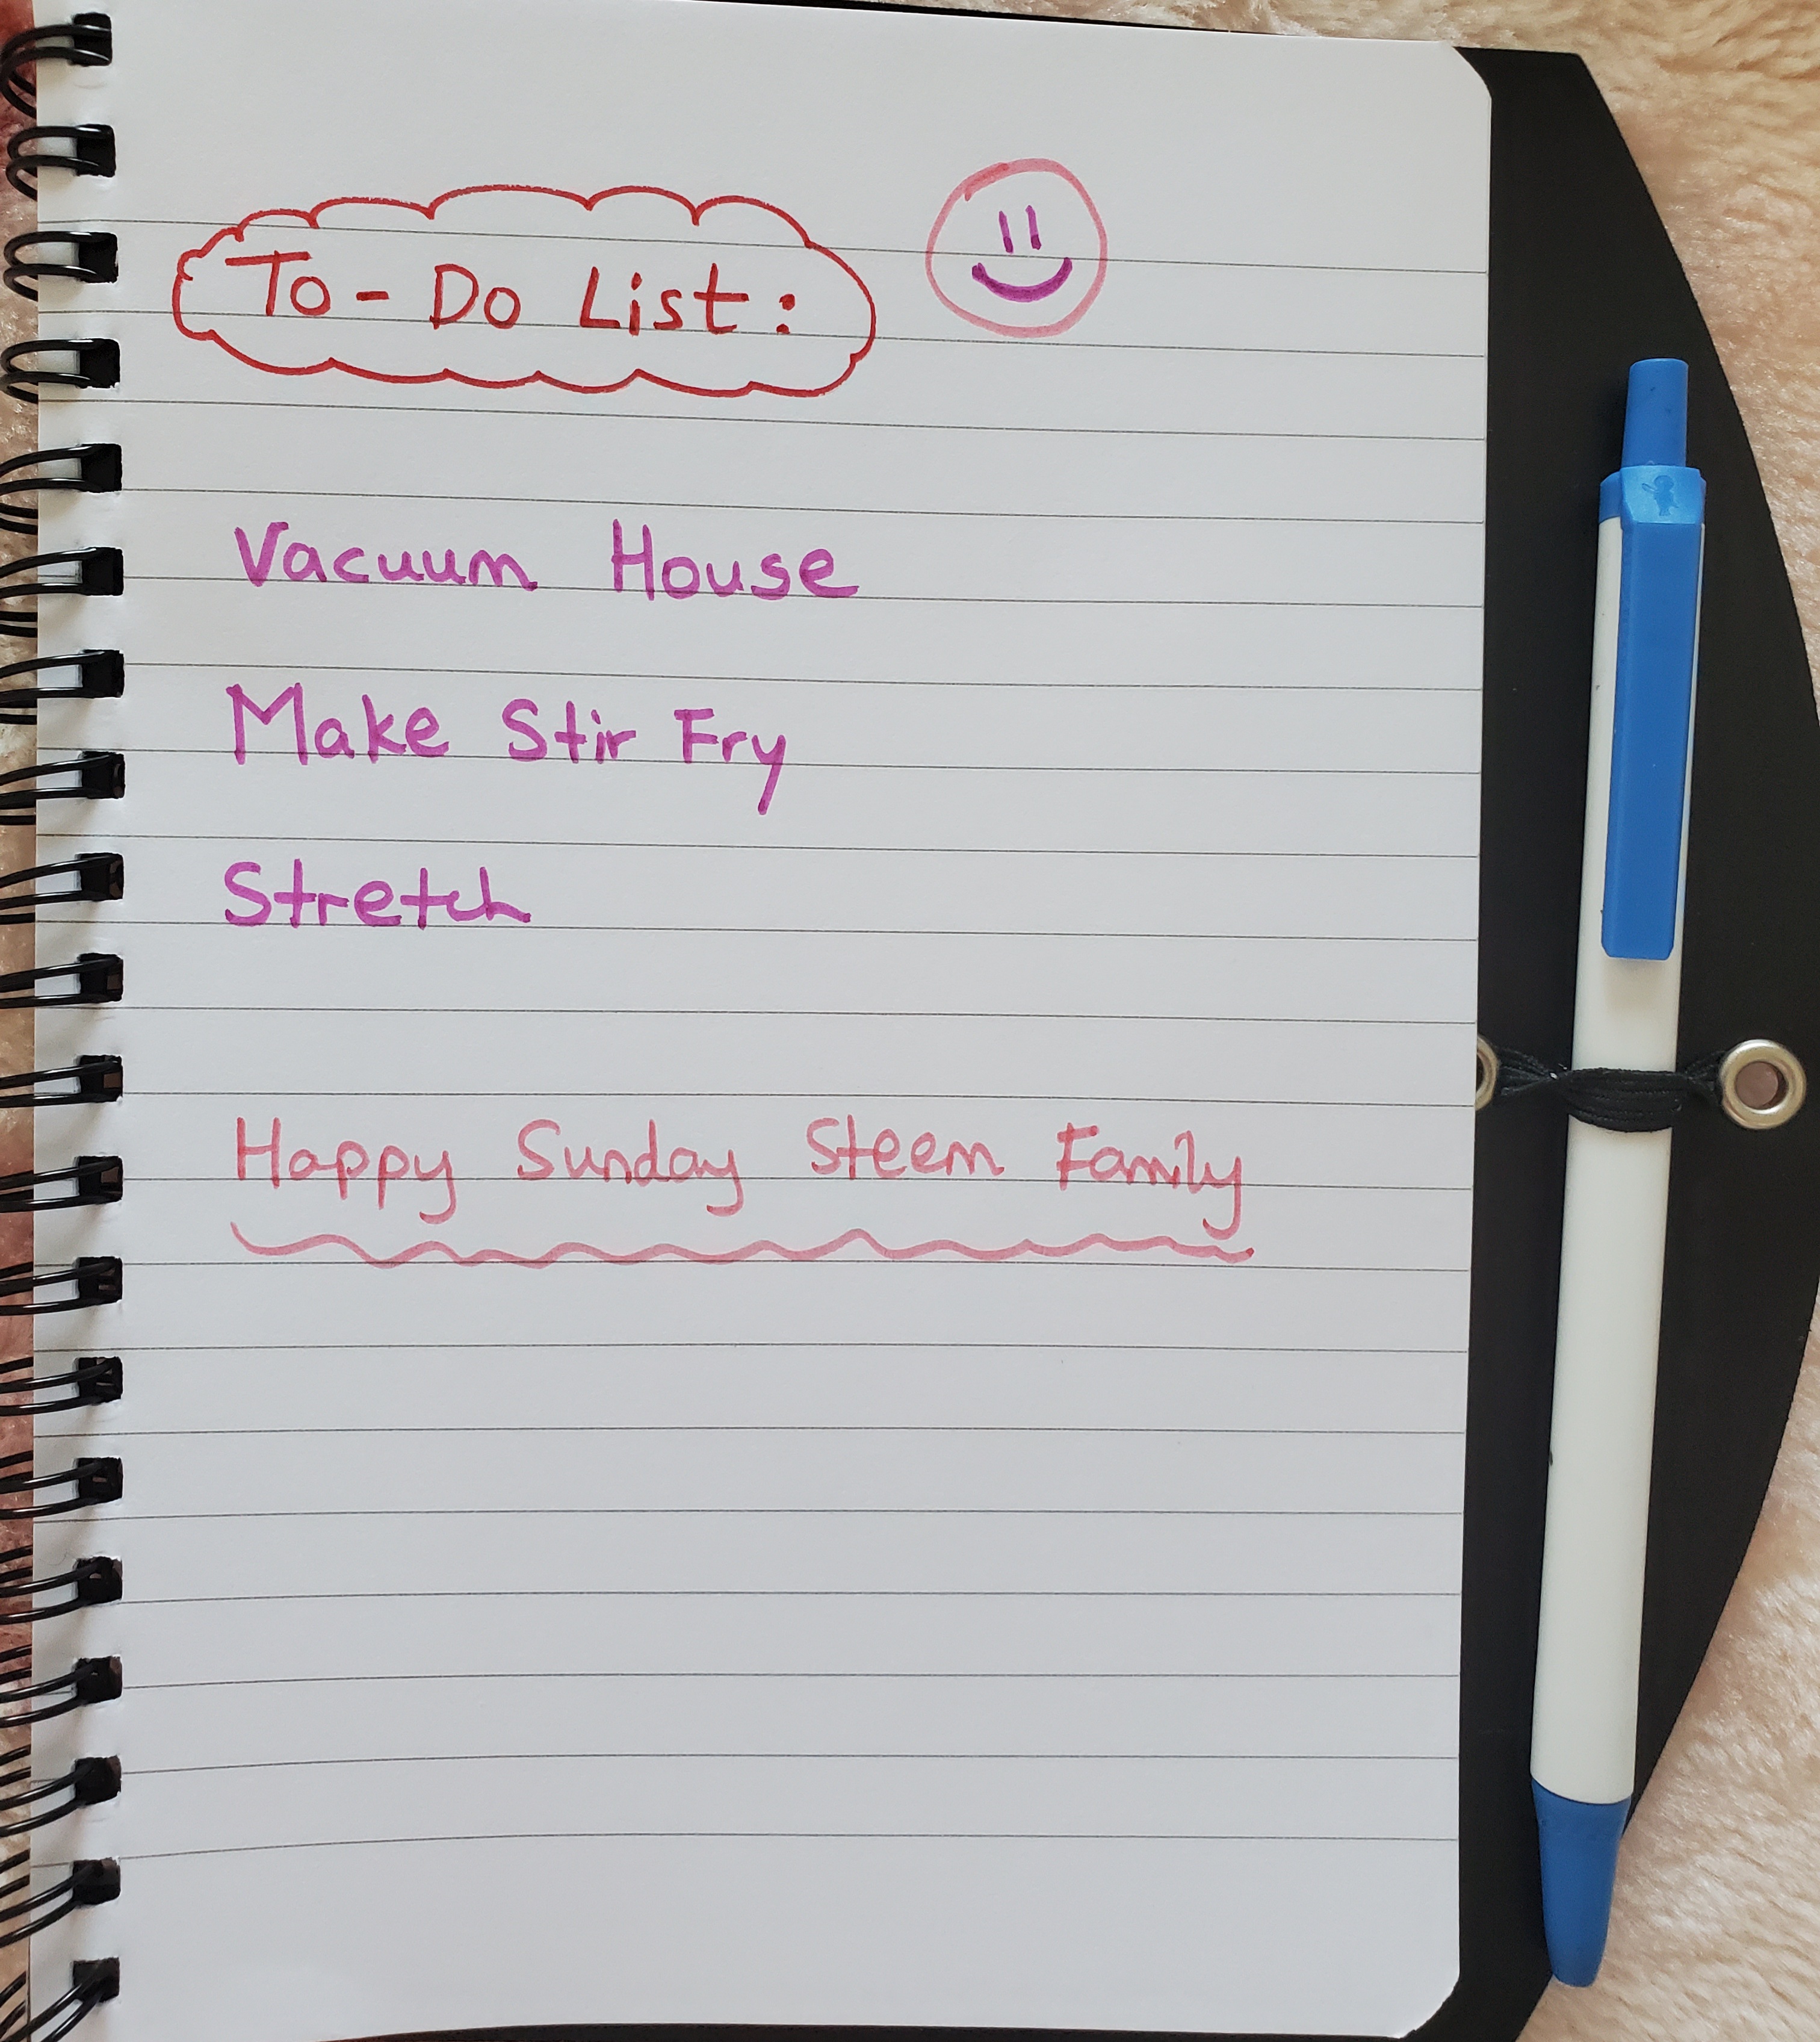 To-Do List:
Vacuum House
Make Stir Fry
Stretch
Happy Sunday Steem Family